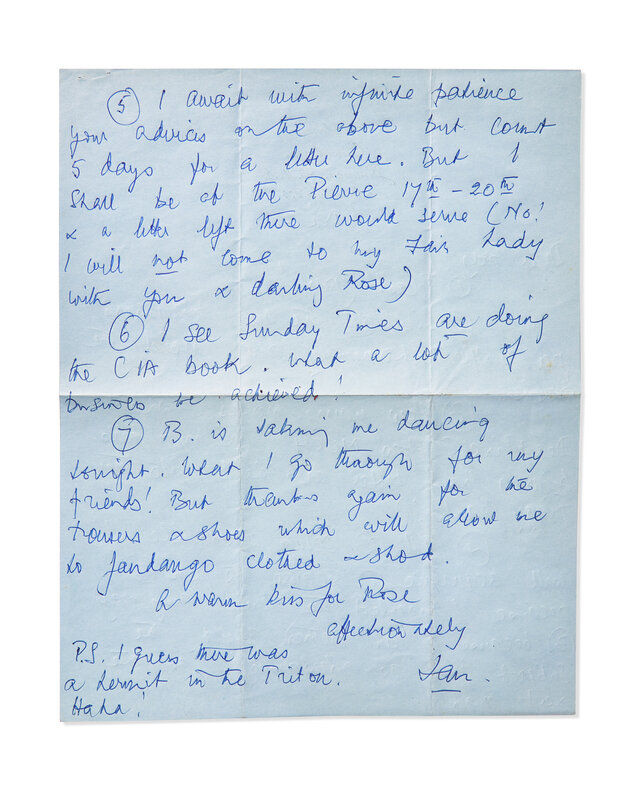 (5) I await with infinite patience
your advices on the above but count
5 days for a letter here. But I
shall be at the Pierre 17th - 20th
& a letter left there would serve (No!
I will not come to My Fair Lady
with you & darling Rose)
(6) I see Sunday Times are doing
the CIA book. What a lot of
business be achieved!
(7) B. is taking me dancing
tonight. What I go through for my
friends! But thanks again for the
trousers & shoes which will allow me
to fandango clothed & shod.
A warm kiss for Rose
affectionately
Ian.
P.S. I guess there was
a hermit in the Triton.
Haha!